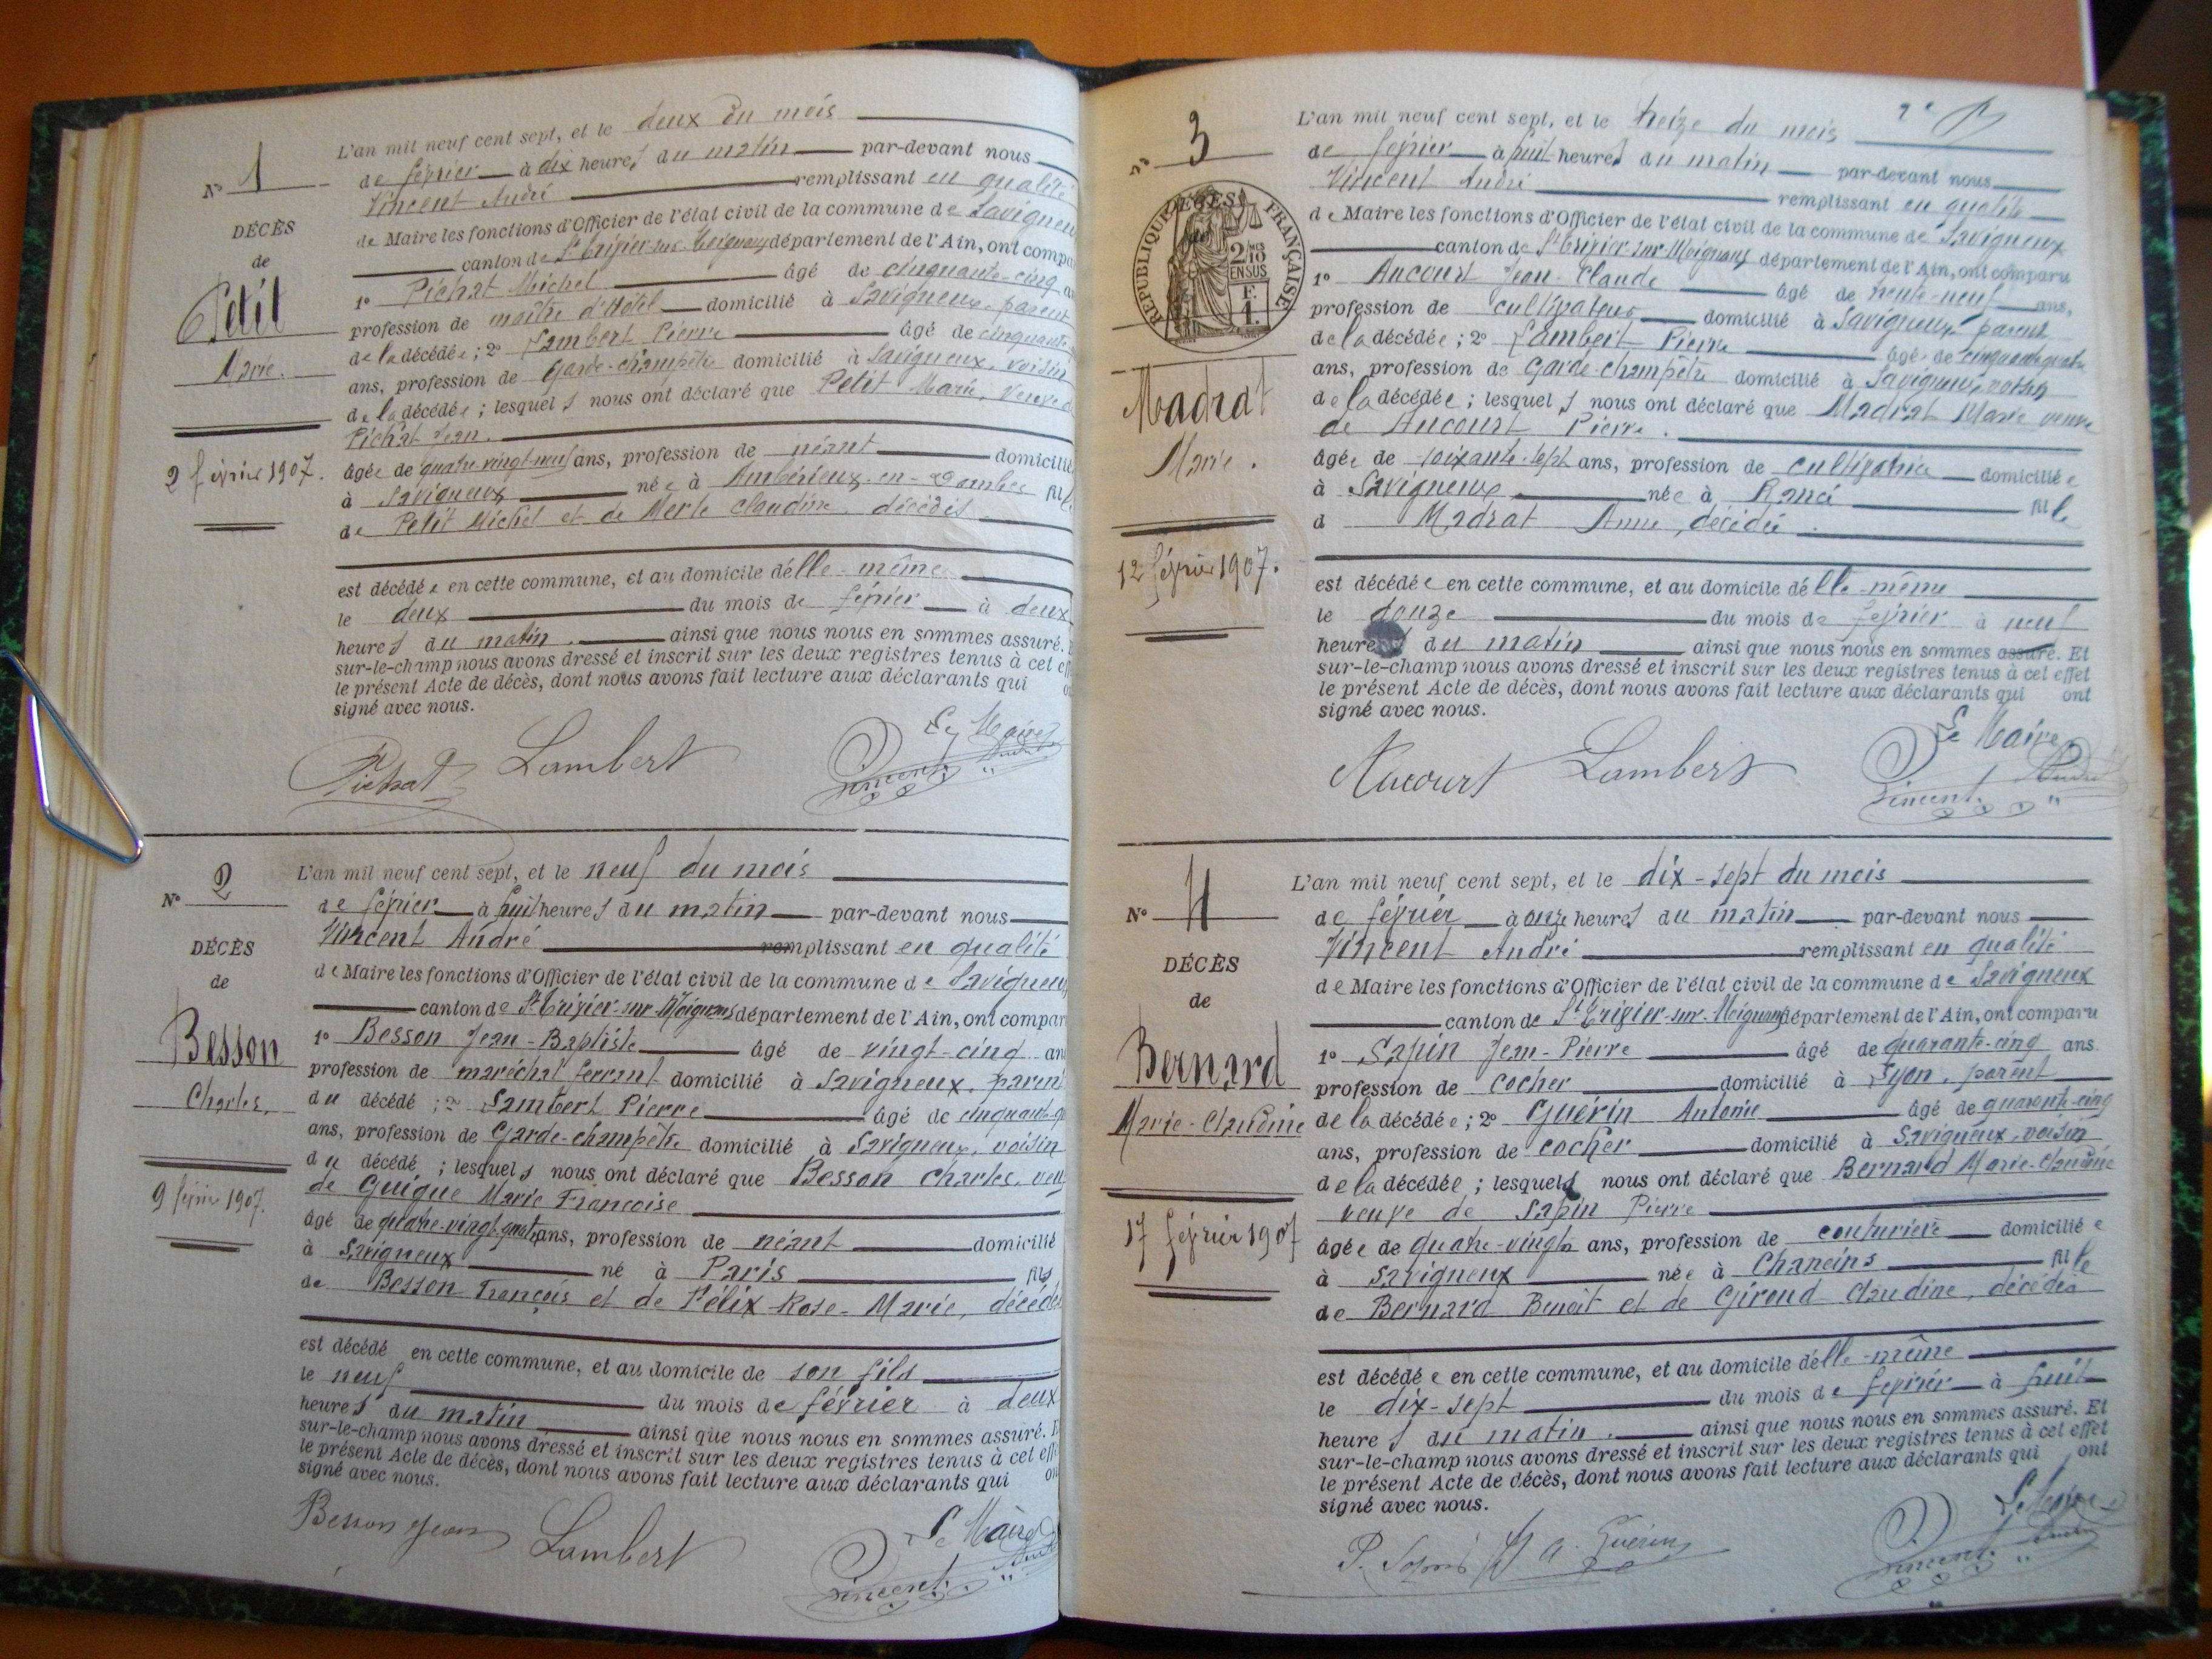 N° 1
DÉCÈS
de
Petit
Marie.
2 février 1907.
L'an mil neuf cent sept, et le deux du mois
de février à dix heures du matin par-devant nous
Vincent André remplissant en qualité
de Maire les fonctions d'Officier de l'état civil de la commune de Savigneux
canton de St Trivier-sur-Moignans département de l'Ain, ont compa
1° Pichat Michel âgé de cinquante-cinq
profession de maître d'Hôtel domicilié à Savigneux, parent
de la décédée ; 2° Lambert Pierre âgé de cinquante
ans, profession de Garde-champêtre domicilié à Savigneux, voisin
de la décédée ; lesquels nous ont déclaré que Petit Marie, Veuve
Pichat Jean.
âgée de quatre-vingt-neuf ans, profession de néant domicilié
à Savigneux née à Ambérieux-en-Dombes fille
de Petit Michel et de Merle Claudine, décédés
est décédée en cette commune, et au domicile d'elle-même
le deux du mois de février à deux
heures du matin. ainsi que nous nous en sommes assuré.
sur-le-champ nous avons dressé et inscrit sur les deux registres tenus à cet
le présent Acte de décès, dont nous avons fait lecture aux déclarants qui
signé avec nous.
Le Maire
Pichat Lambert Vincent André
N° 2
DÉCÈS
de
Besson
Charles.
9 février 1907.
L'an mil neuf cent sept, et le neuf du mois
de février à huit heures du matin par-devant nous
Vincent André remplissant en qualité
de Maire les fonctions d'Officier de l'état civil de la commune de Savigneux
canton de St Trivier-sur-Moignans département de l'Ain, ont compar
1° Besson Jean-Baptiste âgé de vingt-cinq an
profession de maréchal ferrant domicilié à Savigneux, parent
du décédé ; 2° Lambert Pierre âgé de cinquante-q
ans, profession de Garde-champêtre domicilié à Savigneux, voisin
du décédé ; lesquels nous ont déclaré que Besson Charles, veuf
de Guigue Marie Françoise
âgé de quatre-vingt-quatre ans, profession de néant domicilié
à Savigneux né à Paris fils
de Besson François et de Félix Rose-Marie, décédés
est décédé en cette commune, et au domicile de son fils
le neuf du mois de février à deux
heures du matin ainsi que nous nous en sommes assuré.
sur-le-champ nous avons dressé et inscrit sur les deux registres tenus à cet eff
le présent Acte de décès, dont nous avons fait lecture aux déclarants qui on
signé avec nous.
Le Maire
Besson Jean Lambert Vincent André
2e
N° 3
RÉPUBLIQUE FRANÇAISE
2/10 EN SUS
F. 1.
Madrat
Marie.
12 février 1907.
L'an mil neuf cent sept, et le treize du mois
de février à huit heures du matin par-devant nous
Vincent André remplissant en qualité
de Maire les fonctions d'Officier de l'état civil de la commune de Savigneux
canton de St Trivier-sur-Moignans département de l'Ain, ont comparu
1° Aucourt Jean-Claude âgé de trente-neuf ans,
profession de cultivateur domicilié à Savigneux parent
de la décédée ; 2° Lambert Pierre âgé de cinquante-quatre
ans, profession de Garde-champêtre domicilié à Savigneux, voisin
de la décédée ; lesquels nous ont déclaré que Madrat Marie veuve
de Aucourt Pierre.
âgée de soixante-sept ans, profession de cultivatrice domiciliée
à Savigneux née à Rancé fille
d Madrat Anne, décédée.
est décédée en cette commune, et au domicile d'elle-même
le douze du mois de février à neuf
heures du matin ainsi que nous nous en sommes assuré. Et
sur-le-champ nous avons dressé et inscrit sur les deux registres tenus à cet effet
le présent Acte de décès, dont nous avons fait lecture aux déclarants qui ont
signé avec nous.
Le Maire
Aucourt Lambert Vincent André
N° 4
DÉCÈS
de
Bernard
Marie-Claudine
17 février 1907
L'an mil neuf cent sept, et le dix-sept du mois
de février à onze heures du matin par-devant nous
Vincent André remplissant en qualité
de Maire les fonctions d'Officier de l'état civil de la commune de Savigneux
canton de St Trivier-sur-Moignans département de l'Ain, ont comparu
1° Sapin Jean-Pierre âgé de quarante-cinq ans.
profession de cocher domicilié à Lyon, parent
de la décédée ; 2° Guérin Antoine âgé de quarante-cinq
ans, profession de cocher domicilié à Savigneux, voisin
de la décédée ; lesquels nous ont déclaré que Bernard Marie-Claudine
veuve de Sapin Pierre
âgée de quatre-vingts ans, profession de couturière domiciliée
à Savigneux née à Chaneins fille
de Bernard Benoit et de Giroud Claudine, décédés
est décédée en cette commune, et au domicile d'elle-même
le dix-sept du mois de février à huit
heures du matin. ainsi que nous nous en sommes assuré. Et
sur-le-champ nous avons dressé et inscrit sur les deux registres tenus à cet effet
le présent Acte de décès, dont nous avons fait lecture aux déclarants qui ont
signé avec nous.
Le Maire
P. Sapin A. Guérin Vincent André